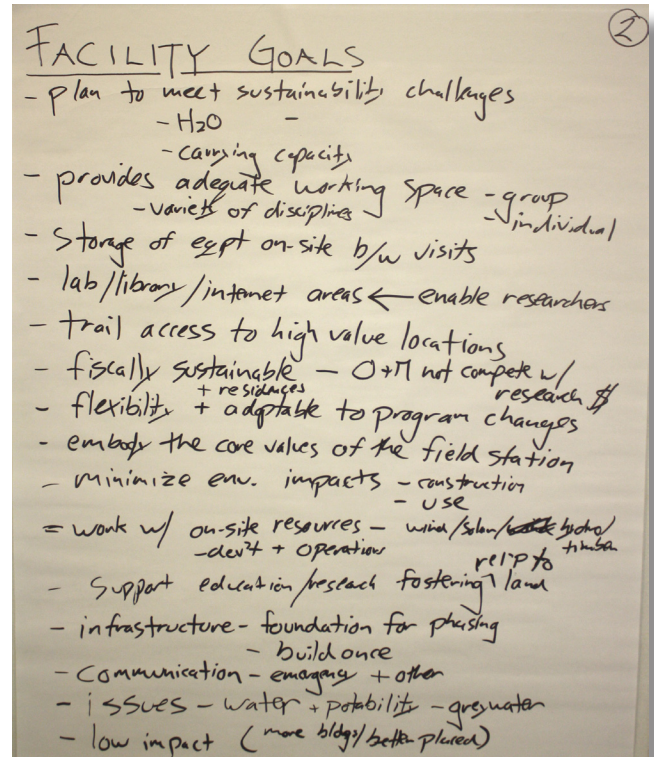 2
FACILITY GOALS
- plan to meet sustainability challenges
- H2O -
- carrying capacity
- provides adequate working space - group
- variety of disciplines - individual
- storage of eqpt on-site b/w visits
- lab/library/internet areas ← enable researchers
- trail access to high value locations
- fiscally sustainable - O+M not compete w/
+ residences research $
- flexibility + adaptable to program changes
- embody the core values of the field station
- minimize env. impacts - construction
- use
- work w/ on-site resources - wind/solar/ hydro/
- dev't + operations timber
rel'p to
- support education/research fostering land
- infrastructure - foundation for phasing
- build once
- communication - emergency + other
- issues - water + potability - greywater
- low impact (more bldgs/better placed)